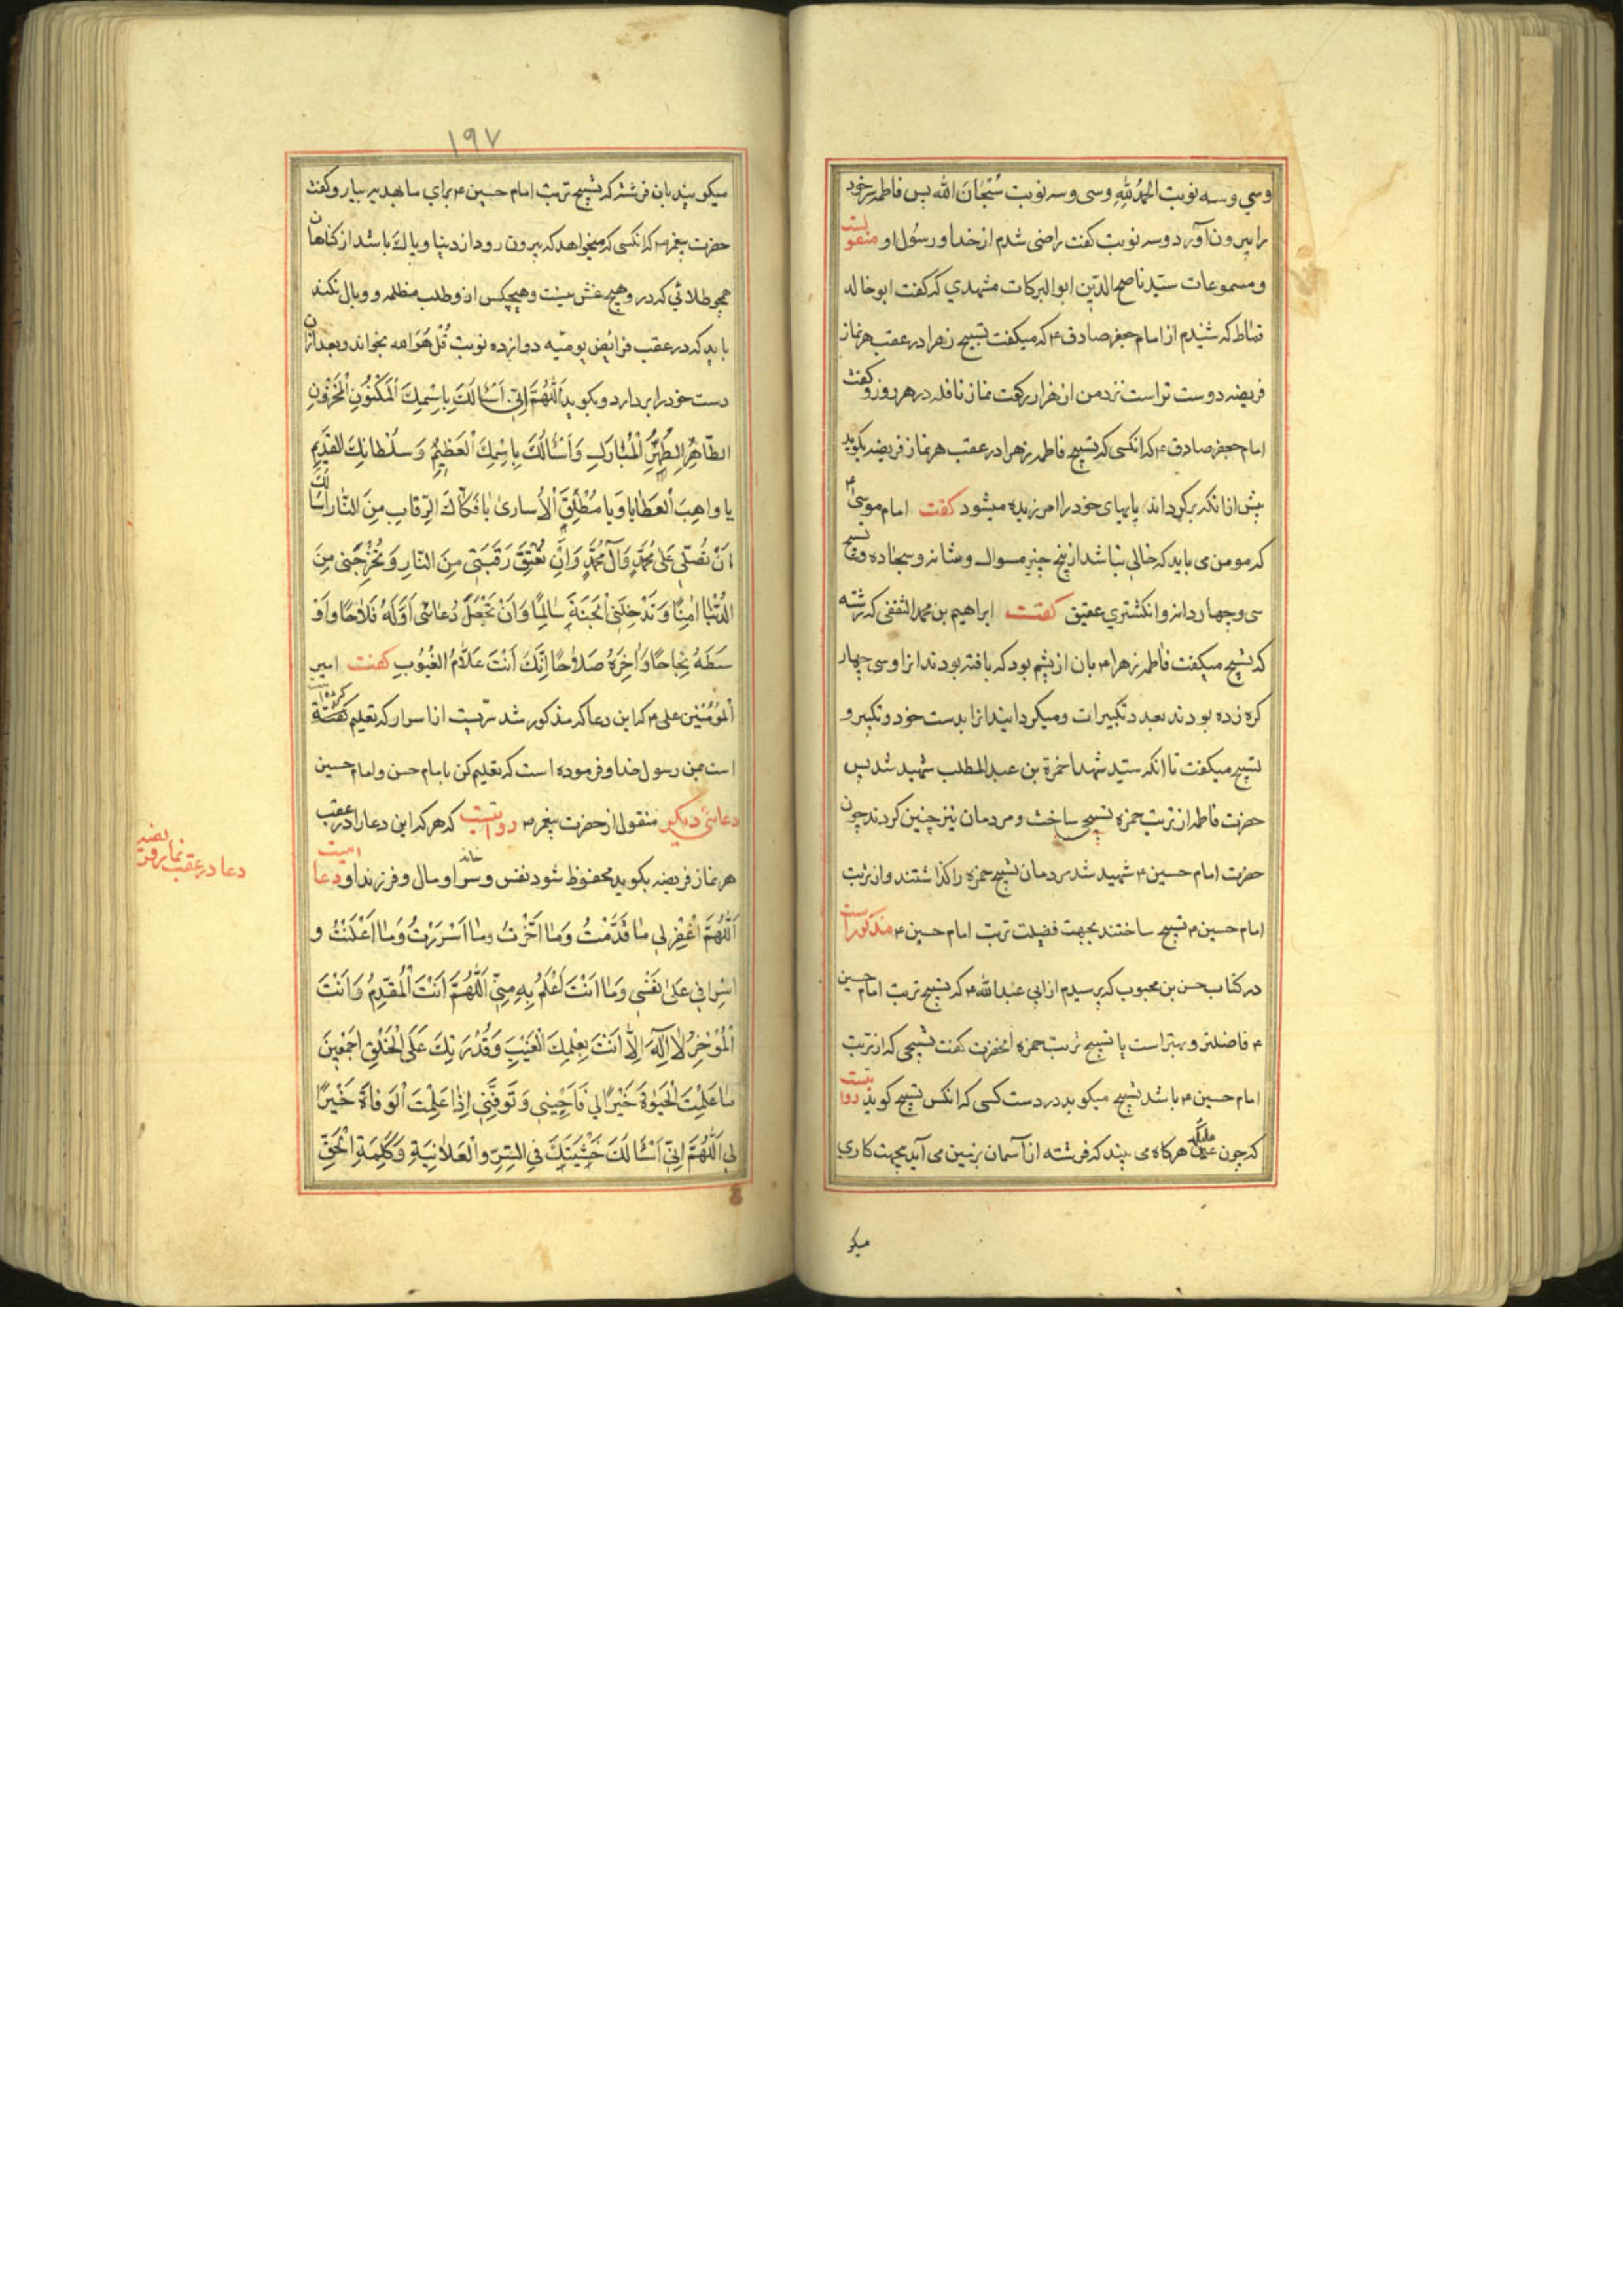 وسي وسه نوبت الحمدُ لِلّهِ وسی وسه نوبت سُبْحَانَ الله پس فاطمه سر خود
را بیرون آورد وسه نوبت کفت راضی شدم از خدا و رسُول او منقولست
ومسموعات سیّد ناصح الدّین ابوالبرکات مشهدي که کفت ابوخالد
قماط که شنیدم از امام جعفر صادق ع که میکفت تسبیح زهرا در عقب هر نماز
فریضه دوست تر است نزد من از هزار رکعت نماز نافله در هر روز و کفت
امام جعفر صادق ع که انکسی که تسبیح فاطمه زهرا در عقب هر نماز فریضه بکوید
پیش از انکه برکرداند پایهای خود را امرزیده میشود کفت امام موسی ع
که مومن می باید که خالی نباشد از پنج چیز مسواک وشانه وسجاده وتسبیح
سی وچهار دانه وانکشتري عقیق کفت ابراهیم بن محمد الثقفی که رشته
که تسبیح میکفت فاطمه زهرا ع بان از پشم بود که بافته بودند انرا وسی چهار
کره زده بودند بعدد تکبیرات ومیکردانیدانرا بدست خود وتکبیر و
تسبیح میکفت تا انکه سید شهدا حمزة بن عبد المطلب شهید شد پس
حضرت فاطمه از تربت حمزه تسبیح ساخت ومردمان نیز چنین کردند چون
حضرت امام حسین ع شهید شد مردمان تسبیح حمزه را کذاشتند واز تربت
امام حسین ع تسبیح ساختند بجهت فضیلت تربت امام حسین ع مذکور است
در کتاب حسن بن محبوب که پرسیدم از ابی عبد الله ع که تسبیح تربت امام حسین
ع فاضلتر وبهتر است یا تسبیح تربت حمزه انحضرت کفت تسبیحی که از تربت
امام حسین ع باشد تسبیح میکوید در دست کسی که انکس تسبیح کوید روایتست
که چون ملیکه هرکاه می بیند که فرشته از آسمان بزمین می آید بجهت کاري
میکو
١٩٧
میکویند بان فرشته که تسبیح تربت امام حسین ع براي ما بهدیه بیار وکفت
حضرت پیغمبر ص که انکسی که میخواهد که بیرون رود از دنیا وپاک باشد از کناهان
همچو طلائي که درو هیچ غش نیست وهیچکس ازو طلب مظلمه ووبال نکند
باید که در عقب فرائض یومیّه دوازده نوبت قُلْ هُوَ الله بخواند وبعد ازان
دست خود را بردارد وبکوید اَللّهُمَّ اِنّی اَسْأَلُكَ بِاسْمِكَ الْمَكْنُونِ الْمَخْزُونِ
الطّاهِرِ الطُّهْرِ الْمُبَارَكِ وَاَسْأَلُكَ بِاسْمِكَ الْعَظِيمِ وَسُلْطَانِكَ الْقَدِيمِ
يا واهِبَ الْعَطايا وَيا مُطْلِقَ الْاُسارىٰ يا فَكّاكَ الرِّقابِ مِنَ النّارِ اَسْأَلُكَ
اَنْ تُصَلِّيَ عَلىٰ مُحَمَّدٍ وَآلِ مُحَمَّدٍ وَاَنْ تُعْتِقَ رَقَبَتی مِنَ النّارِ وَتُخْرِجَنی مِنَ
الدُّنْيا اٰمِنًا وَتُدْخِلَنِی الْجَنَّةَ سالِمًا وَاَنْ تَجْعَلَ دُعائی اَوَّلَهُ فَلاحًا واَوْ
سَطَهُ نَجاحًا وَاٰخِرَهُ صَلاحًا اِنَّكَ اَنْتَ عَلّامُ الْغُيُوبِ کفت امیر
الْمُؤْمِنین علی ع که این دعا که مذکور شد تربیت از اسرار که تعلیم کفته
است بمن رسول خدا وفرموده است که تعلیم کن بامام حسن وامام حسین
دعائی دیکر منقول از حضرت پیغمبر ص روایتست که هر که این دعا را در عقب
هر نماز فریضه بکوید محفوظ شود نفس وسرا ومال وفرزند او دعا اینست
اَللّهُمَّ اغْفِرْ لي ما قَدَّمْتُ وَما اَخَّرْتُ وما اَسْرَرْتُ وَما اَعْلَنْتُ و
اِسْرافي عَلىٰ نَفْسي وَما اَنْتَ اَعْلَمُ بِهِ مِنّي اَللّهُمَّ اَنْتَ الْمُقَدِّمُ وَاَنْتَ
الْمُؤَخِّرُ لا اِلٰهَ اِلّا اَنْتَ بِعِلْمِكَ الْغَيْبَ وَقُدْرَتِكَ عَلَى الْخَلْقِ اَجْمَعِينَ
ما عَلِمْتَ الْحَيٰوةَ خَيْرًا لي فَاَحْيِني وَتَوَفَّني اِذا عَلِمْتَ الْوَفاةَ خَيْرًا
لي اَللّهُمَّ اِنّي اَسْأَلُكَ خَشْيَتَكَ فِي السِّرِّ والْعَلانِيَةِ وَكَلِمَةَ الْحَقِّ
دعا در عقب نماز فریضه